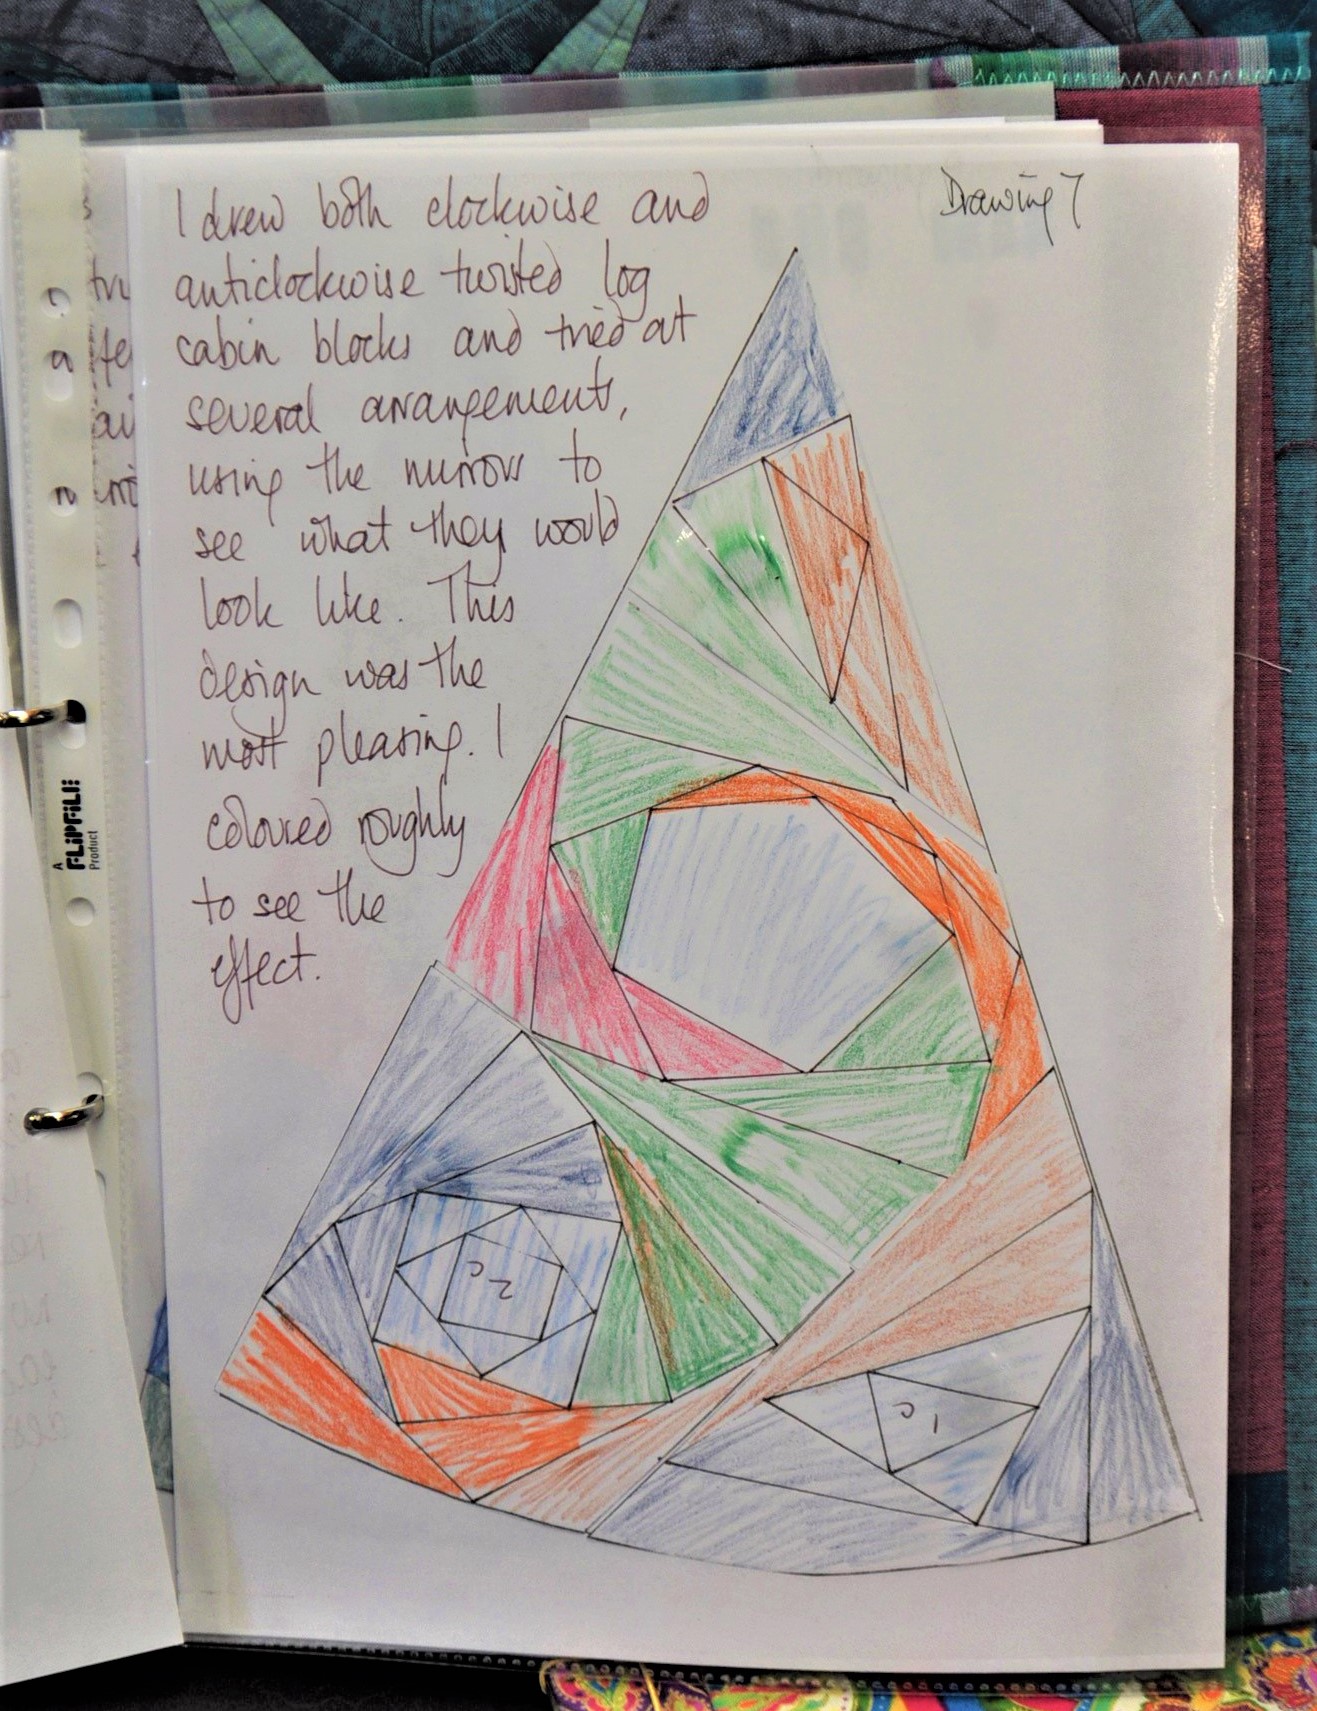 Drawing 7
I drew both clockwise and
anticlockwise twisted log
cabin blocks and tried out
several arrangements,
using the mirrors to
see what they would
look like. This
design was the
most pleasing. I
coloured roughly
to see the
effect.
2c
1c
A
FLIPFILE
Product